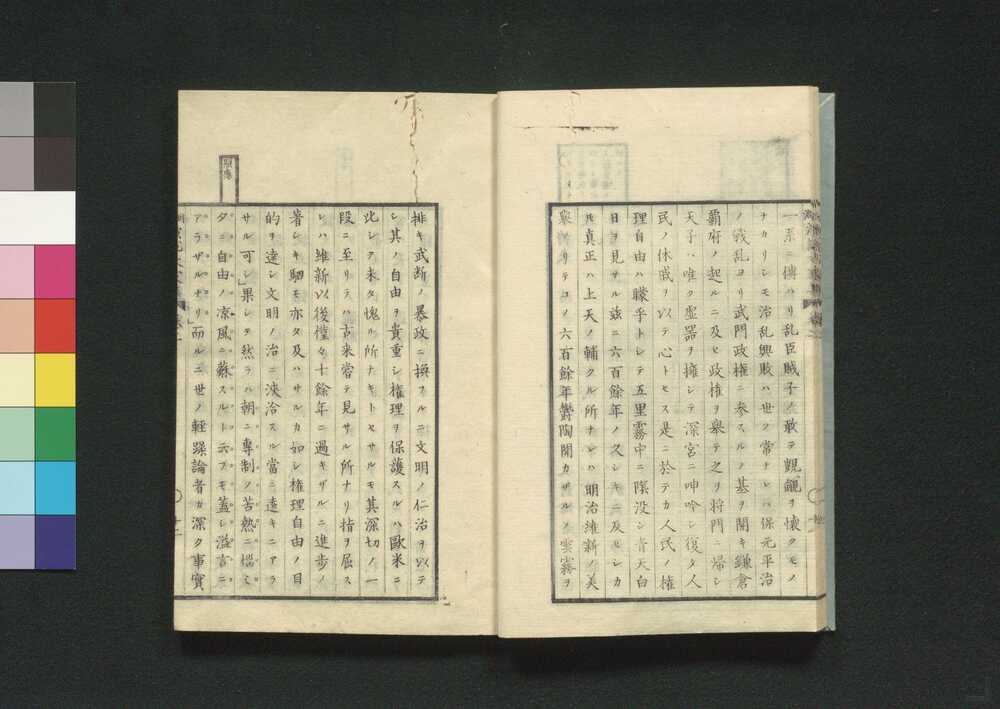 一系ニ傳ハリ乱臣賊子ノ敢テ覬覦ヲ懐クモノ
ナカリシモ治乱興敗ハ世ノ常ナレハ保元平治
ノ戦乱ヨリ武門政権ニ参スルノ基ヲ開キ鎌倉
覇府ノ起ルニ及ヒ政権ヲ挙テ之ヲ將門ニ帰シ
天子ハ唯タ虚器ヲ擁シテ深宮ニ呻吟シ復タ人
民ノ休戚ヲ以テ心トセス是ニ於テカ人民ノ権
理自由ハ朦乎トシテ五里霧中ニ陥没シ青天白
日ヲ見サル茲ニ六百餘年ノ久シキニ及ヒシカ
真正ハ上天ノ輔クル所ナレハ明治維新ノ美
挙アリテコノ六百餘年鬱陶開カザルノ雲霧ヲ
排キ武断ノ暴政ニ換スルニ文明ノ仁治ヲ以テ
シ其ノ自由ヲ貴重シ権理ヲ保護スルハ歐米ニ
比シテ未タ愧ル所ナキトセサルモ其深切ノ一
段ニ至リテハ古来嘗テ見サル所ナリ指ヲ屈ス
レハ維新以後僅々十餘年ニ過キザルニ進歩ノ
著シキ駟モ亦タ及ハサルカ如シ権理自由ノ目
的ヲ達シ文明ノ治ニ浹洽スル當ニ遠キニアラ
サル可シ」果シテ然ラハ朝ニ專制ノ苦熱ニ惱ミ
タニ自由ノ凉風ニ蘇スルト云フモ蓋シ溢言ニ
アラザルナリ」而ルニ世ノ軽躁論者カ深ク事實